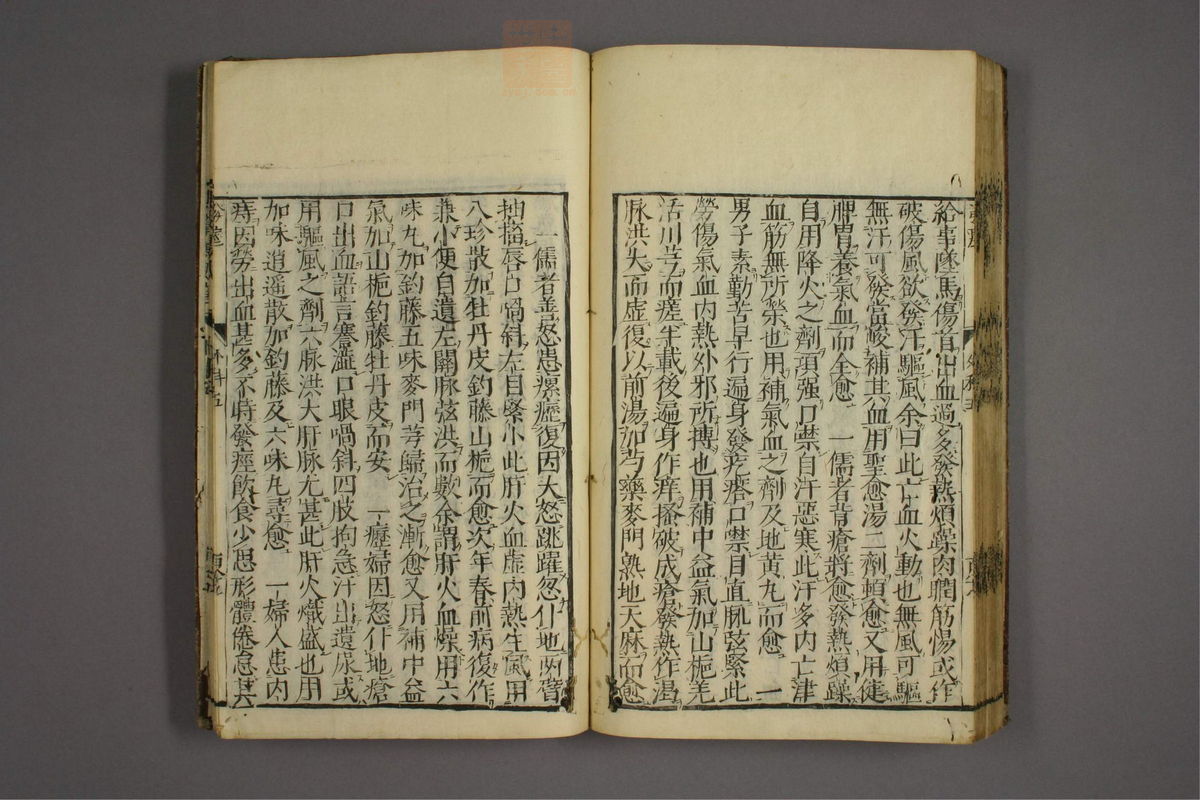 給事墜馬傷首出血過多發熱煩躁肉瞤筋惕或作
破傷風欲發汗驅風余曰此亡血火動也無風可驅
無汗可發當峻補其血用聖愈湯二劑頓愈又用健
脾胃養氣血而全愈 一儒者背瘡將愈發熱煩躁
自用降火之劑項强口噤自汗惡寒此汗多內亡津
血筋無所榮也用補氣血之劑及地黃丸而愈 一
男子素勤苦早行遍身發疙瘩口噤目直脈弦緊此
勞傷氣血內熱外邪所搏也用補中益氣加山梔羌
活川芎而痊半載後遍身作痒搔破成瘡發熱作渴
脉洪大而虛復以前湯加芍藥麥門熟地天麻而愈
一儒者善怒患瘰癧復因大怒跳躍忽仆地兩臂
抽搐唇口喎斜左目緊小此肝火血虛內熱生風用
八珍散加牡丹皮釣藤山梔而愈次年春前病復作
兼小便自遺左關脉弦洪而數余謂肝火血燥用六
味丸加釣藤五味麥門芎歸治之漸愈又用補中益
氣加山梔釣藤牡丹皮而安 一瘡婦因怒仆地瘡
口出血語言謇澁口眼喎斜四肢拘急汗出遺尿或
用驅風之劑六脉洪大肝脉尤甚此肝火熾盛也用
加味逍遙散加釣藤及六味丸尋愈 一婦人患內
痔因勞出血甚多不時發痙飲食少思形體倦怠其
外科五